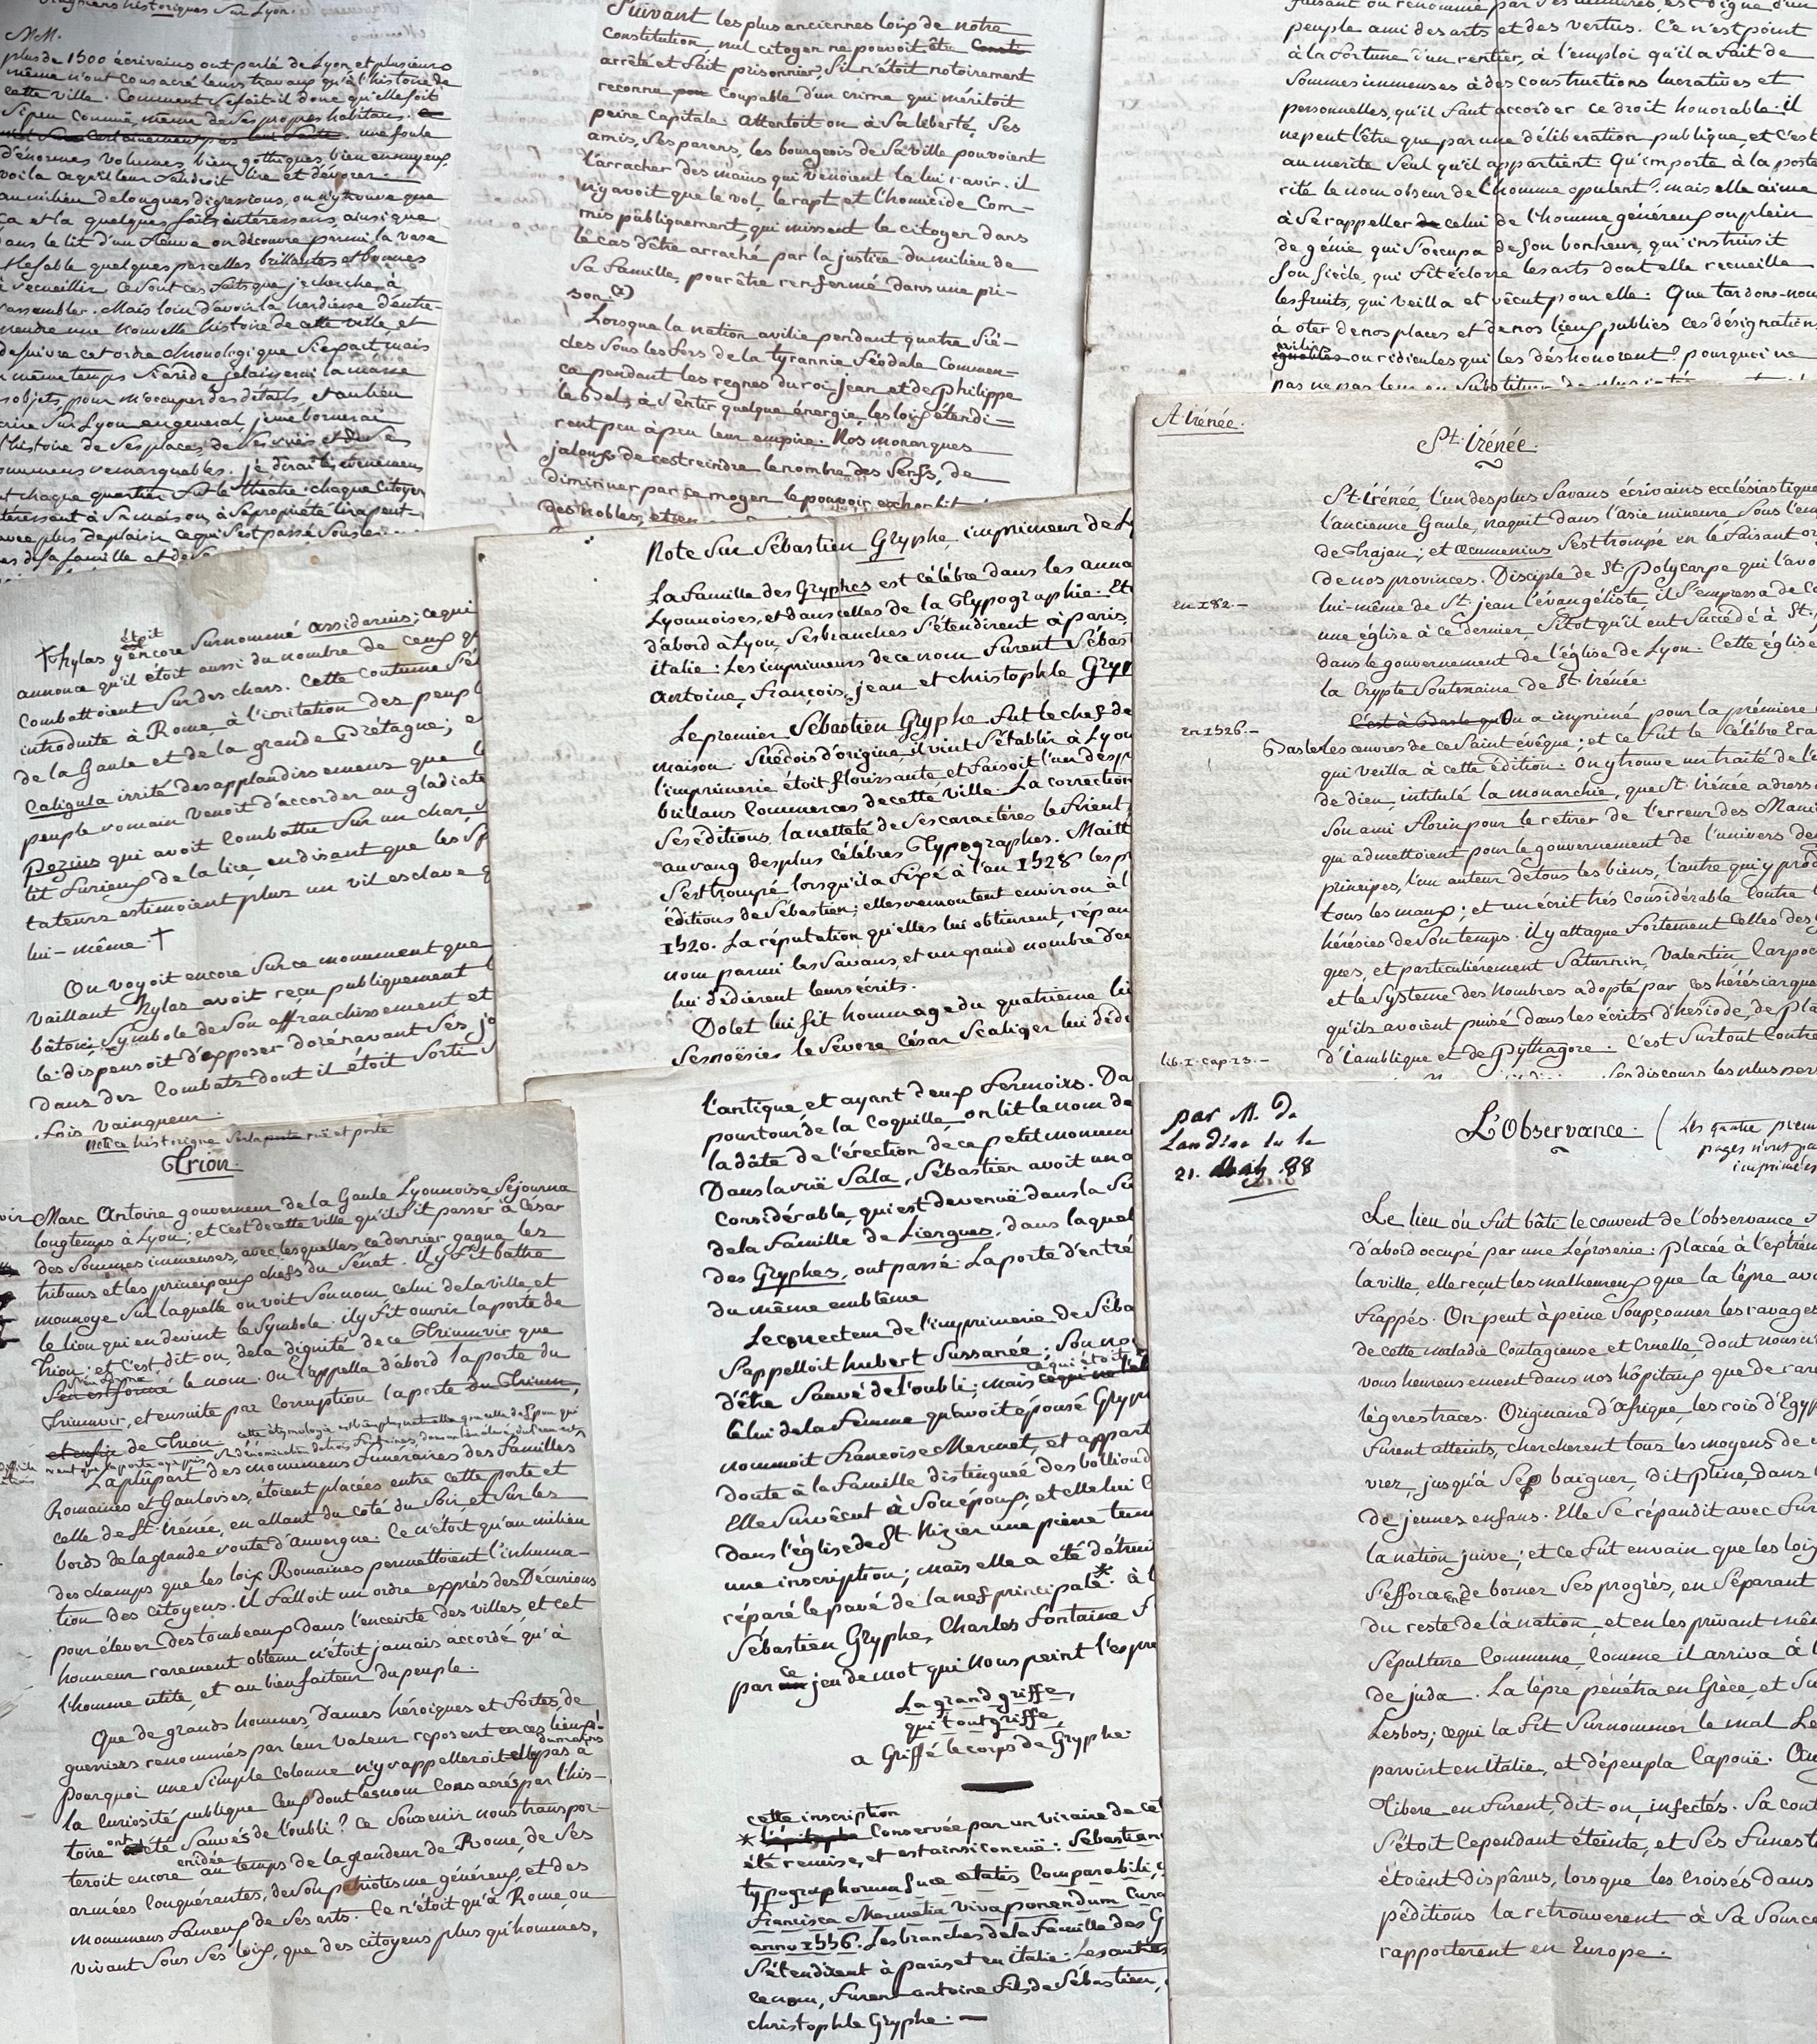 fragmens historiques sur Lyon.
MM.
plus de 1500 écrivains ont parlé de Lyon, et plusieurs
même n'ont consacré leurs travaux qu'à l'histoire de
cette ville. Comment se fait-il donc qu'elle soit
si peu connuë, même de ses propres habitans.
une foule
d'énormes volumes, bien gothiques, bien ennuyeux,
voila ce qu'il leur faudroit lire et dévorer.
au milieu de longues digressions, on n'y trouve que
ça et la quelques faits intéressans, ainsi que
dans le lit d'un fleuve on découvre parmi la vase
et le sable quelques parcelles brillantes et bonnes
à recueillir. Ce sont ces faits que je cherche à
rassembler. Mais loin d'avoir la hardiesse d'entre-
prendre une nouvelle histoire de cette ville, et
de suivre cet ordre chronologique si exact mais
en même temps si aride, je laisserai la masse
objets, pour m'occuper des détails, et au lieu
sur Lyon en general, je me bornerai
l'histoire de ses places, de ses ruës et de ses
monumens remarquables. je dirai les évènemens
t chaque quartier fut le théatre. chaque Citoyen
téressent à sa maison, à sa propriété lira peut-
avec plus de plaisir ce qui s'est passé sous les
de sa famille et de
Suivant les plus anciennes loix de notre
Constitution, nul citoyen ne pouvoit être
arrêté et fait prisonnier, s'il n'étoit notoirement
reconnu coupable d'un crime qui méritoit
peine capitale. Attentoit-on à sa liberté, ses
amis, ses parens, les bourgeois de sa ville pouvoient
l'arracher des mains qui venoient la lui ravir. il
n'y avoit que le vol, le rapt et l'homicide Com-
mis publiquement, qui missent le citoyen dans
le cas d'être arraché par la justice du milieu de
sa famille, pour être renfermé dans une pri-
son.
Lorsque la nation avilie pendant quatre Sié-
cles sous les fers de la tyrannie féodale commen-
ça pendant les regnes du roi jean et de philippe
le Bel, à sentir quelque énergie, les loix étendi-
rent peu à peu leur empire. Nos monarques
jaloux de restreindre le nombre des serfs, de
diminuer par ce moyen le pouvoir exhorbit
des nobles,
faisant ou renommé par ses est digne d'un
peuple ami des arts et des vertus. Ce n'est point
à la fortune d'un rentier, à l'emploi qu'il a fait de
sommes immenses à des constructions lucratives et
personnelles, qu'il faut accorder ce droit honorable. il
ne peut l'être que par une déliberation publique, et c'est
au merite seul qu'il appartient. Qu'importe à la posté
rité le nom obscur de l'homme opulent? mais elle aime
à se rappeller celui de l'homme généreux ou plein
de génie qui s'occupa de son bonheur, qui instruisit
son siécle, qui fit éclorre les arts dont elle recueille
les fruits, qui veilla et vécut pour elle. Que tardons-nous
à oter de nos places et de nos lieux publics ces désignations
avilies
ignobles ou ridicules qui les déshonorent? pourquoi ne
pas ne pas leur en substituer de plus
St. irénée.
St. irénée.
St. irénée, l'un des plus savans écrivains ecclésiastique
l'ancienne Gaule, naquit dans l'asie mineure sous l'em
de Trajan; et œcumenius s'est trompé en le faisant or
de nos provinces. Disciple de St. Polycarpe qui l'avo
en 182.—
lui-même de St. jean l'évangéliste, il s'empressa de
une église à ce dernier, sitot qu'il eut succédé à St.
dans le gouvernement de l'église de Lyon. Cette église
la Crypte souteraine de St. irénée.
On a imprimé pour la prémiere
en 1526.—
Basle les œuvres de ce saint évêque; et ce fut le célèbre Era
qui veilla à cette édition. On y trouve un traité de l'u
de dieu, intitulé la monarchie, que St. irénée adress
son ami florin pour le retirer de l'erreur des Mani
qui admettoient pour le gouvernement de l'univers de
principes, l'un auteur de tous les biens, l'autre qui y prod
tous les maux; et un écrit très considérable contre l
hérésies de son temps. il y attaque fortement celles des
ques, et particuliérement Saturnin, Valentin Carpoc
et le systeme des nombres adopté par ces hérésiarque
qu'ils avoient puisé dans les écrits d'hésiode, de pla
lib. 1. cap. 23.—
d'iamblique et de Pythagore. C'est surtout contre
les discours les plus per
† hylas y étoit encore surnommé assidarius; ce qui
annonce qu'il étoit aussi du nombre de ceux q
combattoient sur des chars. Cette coutume s'é
introduite à Rome, à l'imitation des peupl
de la Gaule et de la grande Bretagne; e
Caligula irrité des applaudissemens que l
peuple romain venoit d'accorder au gladiate
Pozius qui avoit combattu sur un char, s
tit furieux de la lice, en disant que les sp
tateurs estimoient plus un vil esclave q
lui-même †
On voyoit encore sur ce monument que
vaillant hylas avoit reçu publiquement l
bâton, symbole de son affranchissement et
le dispensoit d'exposer dorénavant ses jo
dans des combats dont il étoit sorti
fois vainqueur.
Note sur Sébastien Gryphe, imprimeur de Ly
La famille des Gryphes est célébre dans les anna
Lyonnoises, et dans celles de la Typographie. Et
d'abord à Lyon, ses branches s'étendirent à paris,
italie: Les imprimeurs de ce nom furent Sébast
antoine, françois, jean et christophle Gryp
Le premier Sébastien Gryphe fut le chef de
maison. Suédois d'origine, il vint s'établir à Lyon
l'imprimerie étoit florissante, et faisoit l'un des p
brillans Commerces de cette ville. La correction
ses éditions, la netteté de ses caractéres le firent
au rang des plus célébres Typographes. Maitt
s'est trompé lorsqu'il a fixé à l'an 1528 les p
éditions de Sébastien; elles remontent environ à l
1520. La réputation qu'elles lui obtinrent, répan
nom parmi les savans, et un grand nombre d'en
lui dédiérent leurs écrits.
Dolet lui fit hommage du quatrieme li
ses poësies, le severe César Scaliger lui dédi
Notice historique sur la ruë et porte
Trion.
Marc Antoine gouverneur de la Gaule Lyonnoise séjourna
longtemps à Lyon; et c'est de cette ville qu'il fit passer à César
des sommes immenses, avec lesquelles ce dernier gagna les
tribuns et les principaux chefs du Sénat. Il y fit battre
monnoye sur laquelle on voit son nom celui de la ville et
le lion qui en devint le symbole. il y fit ouvrir la porte de
Trion; et c'est, dit-on, de la dignité de ce Triumvir que
le nom. On l'appella d'abord la porte du
Triumvir, et ensuite par corruption la porte du Trium,
et enfin de Trion.
La plûpart des monumens funéraires des familles
Romaines et Gauloises, étoient placées entre cette porte et
celle de St. irénée, en allant du coté du soir, et sur les
bords de la grande route d'auvergne. Ce n'étoit qu'au milieu
des champs que les loix Romaines permettoient l'inhuma-
tion des citoyens. il falloit un ordre exprès des Décurions
pour élever des tombeaux dans l'enceinte des villes, et cet
honneur rarement obtenu n'étoit jamais accordé qu'à
l'homme utile, et au bienfaiteur du peuple.
Que de grands hommes, d'ames héroïques et fortes, de
guerriers renommés par leur valeur reposent en ces lieux!
Pourquoi une simple colonne n'y rappelleroit pas à
la curiosité publique ceux dont les noms consacrés par l'his-
toire ont été sauvés de l'oubli? Ce souvenir nous transpor-
teroit encore en idée au temps de la grandeur de Rome, de ses
armées conquérantes, de son patriotisme généreux, et des
monumens fameux de ses arts. Ce n'étoit qu'à Rome, ou
vivant sous ses loix, que des citoyens plus qu'hommes,
l'antique et ayant deux fermoirs. Da
pourtour de la coquille, on lit le nom de
la dâte de l'érection de ce petit monum
Dans la ruë Sala, Sébastien avoit un a
considérable, qui est devenuë dans la su
de la famille de Liergues, dans laquel
des Gryphes, ont passé. La porte d'entré
du même embtême
Le correcteur de l'imprimerie de Séba
s'appelloit hubert Sussanée; son no
d'être sauvé de l'oubli; mais ce qui étoit
celui de la femme qu'avoit épousé Gryp
nommoit françoise Mermet, et appart
doute à la famille distinguée des bollioud
Elle survécut à son époux, et elle lui
dans l'église de St. Nizier une pierre tum
une inscription; mais elle a été détruit
réparé le pavé de la nef principale.* à l
Sébastien Gryphe, Charles Fontaine f
par ce jeu de mot qui nous peint l'espr
La grand griffe,
qui tout griffe,
a Griffé le corps de Gryphe.
cette inscription
* l'épitaphe conservée par un vicaire de cet
été remise, et est ainsi conçuë: Sebastien
typographorum suæ ætatis Comparabili,
francisca Mermetia viva ponendum Cura
anno 1556. Les branches de la famille des G
s'étendirent à paris et en italie. Les autres
ce nom, furent antoine fils de Sébastien,
christophle Gryphe.—
par M. De
Landine lu le
21. 88
L'Observance. ( Les quatre prem
pages n'ont pa
imprimées
Le lieu où fut bâti le couvent de l'observance
d'abord occupé par une Léproserie: placée à l'extrém
la ville, elle reçut les malheureux que la lèpre avo
frappés. On peut à peine soupçonner les ravages
de cette maladie contagieuse et cruelle, dont nous n
vons heureusement dans nos hôpitaux que de rare
légeres traces. Originaire d'afrique, les rois d'Egyp
furent atteints, chercherent tous les moyens de
rir, jusqu'à se baigner, dit pline, dans l
de jeunes enfans. Elle se répandit avec fur
la nation juive; et ce fut envain que les loix
s'efforcerent de borner ses progrès, en séparant
du reste de la nation, et en les privant mêm
sépulture commune, comme il arriva à
de juda. La lèpre pénétra en Gréce, et su
Lesbos; ce qui la fit surnommer le mal Le
parvint en italie, et dépeupla Capouë.
Tibere en furent, dit-on, infectés. Sa cont
s'étoit cependant éteinte, et ses funeste
étoient disparus, lorsque les croisés dans
péditions la retrouverent à sa source
rapporterent en Europe.